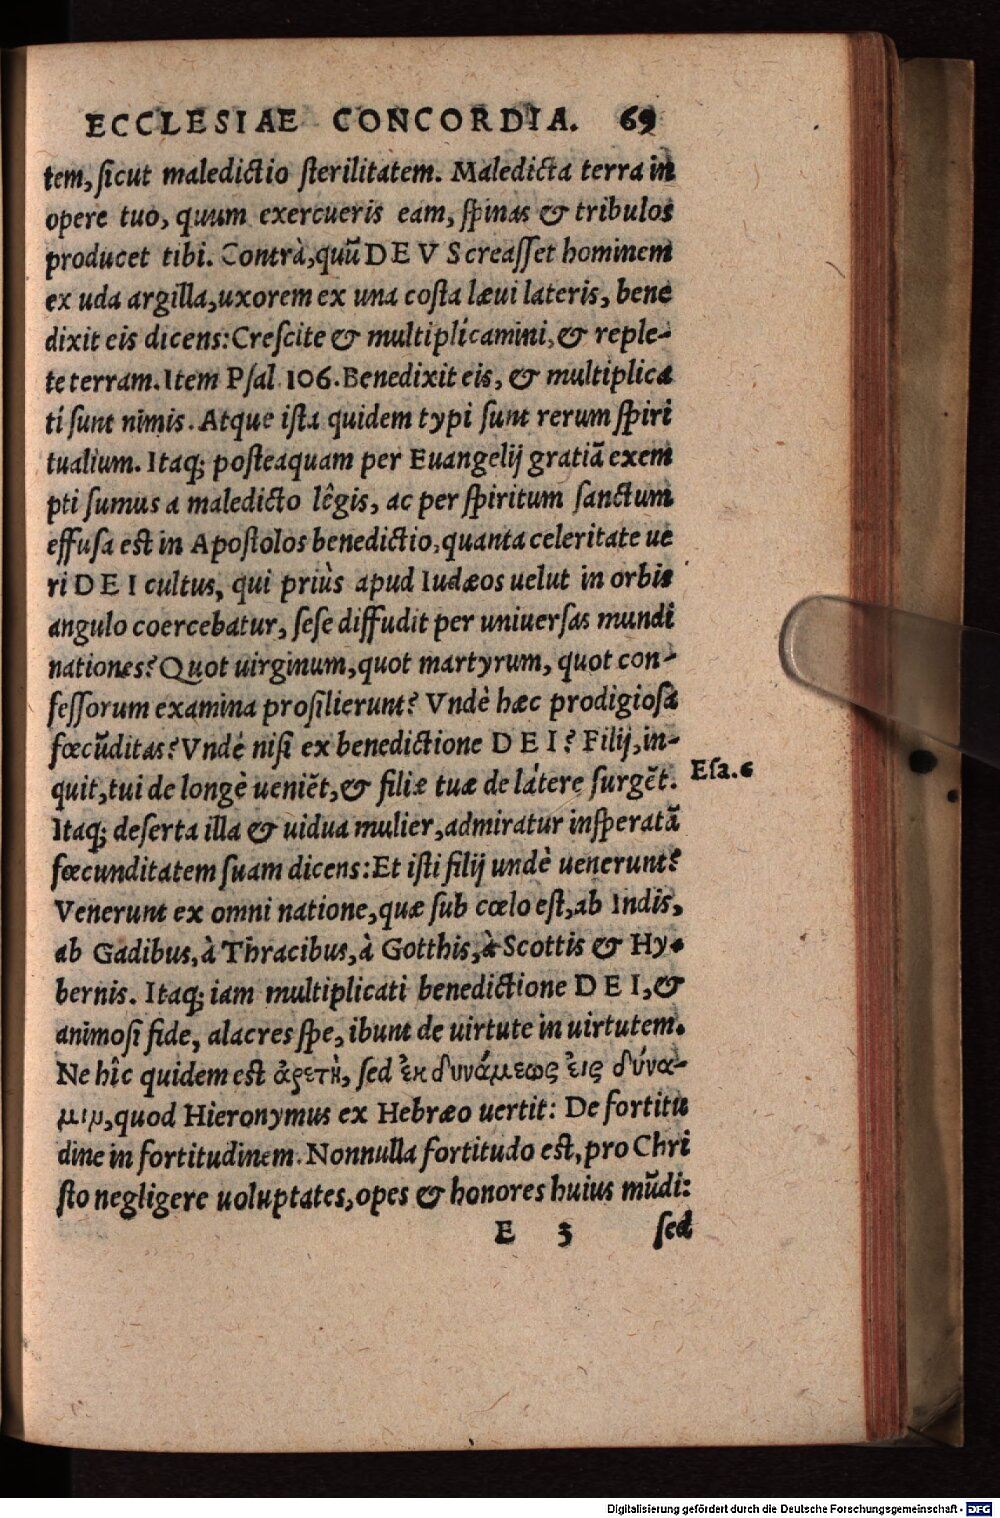 ECCLESIAE CONCORDIA. 69
tem, ſicut maledictio ſterilitatem. Maledicta terra in
opere tuo, quum exercueris eam, ſpinas & tribulos
producet tibi. Contrà, quũ DEVS creaſſet hominem
ex uda argilla, uxorem ex una coſta læui lateris, bene
dixit eis dicens: Creſcite & multiplicamini, & reple-
te terram. Item Pſal 106. Benedixit eis, & multiplica
ti ſunt nimis. Atque iſta quidem typi ſunt rerum ſpiri
tualium. Itaq; poſteaquam per Euangelij gratiã exem
pti ſumus a maledicto lêgis, ac per ſpiritum ſanctum
effuſa est in Apoſtolos benedictio, quanta celeritate ue
ri DEI cultus, qui priùs apud Iudæos uelut in orbis
angulo coercebatur, ſeſe diffudit per uniuerſas mundi
nationes? Quot uirginum, quot martyrum, quot con-
feſſorum examina proſilierunt? Vndè hæc prodigioſa
fœcũditas? Vndè niſi ex benedictione DEI? Filij, in-
quit, tui de longè ueniẽt, & filiæ tuæ de látere ſurgẽt. Eſa. 6
Itaq; deſerta illa & uidua mulier, admiratur inſperatã
fœcunditatem ſuam dicens: Et iſti filij undè uenerunt?
Venerunt ex omni natione, quæ ſub cœlo eſt, ab Indis,
ab Gadibus, à Thracibus, à Gotthis, à Scottis & Hy-
bernis. Itaq; iam multiplicati benedictione DEI, &
animoſi fide, alacres ſpe, ibunt de uirtute in uirtutem.
Ne hîc quidem est ἀρετὴ, ſed ἐκ δυνάμεως ἐις δύνα-
μιμ, quod Hieronymus ex Hebræo uertit: De fortitu
dine in fortitudinem. Nonnulla fortitudo est, pro Chri
ſto negligere uoluptates, opes & honores huius mũdi:
E 3 ſed
Digitalisierung gefördert durch die Deutsche Forschungsgemeinschaft - DFG